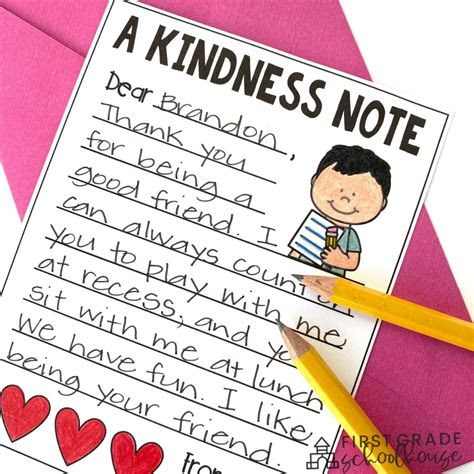 A KINDNESS NOTE
Dear Brandon,
Thank you
for being a
good friend. I
can always count on
you to play with me
at recess, and yo
sit with me at lunch
We have fun. I like
being your friend.
From
FIRST GRADE
schoolhouse